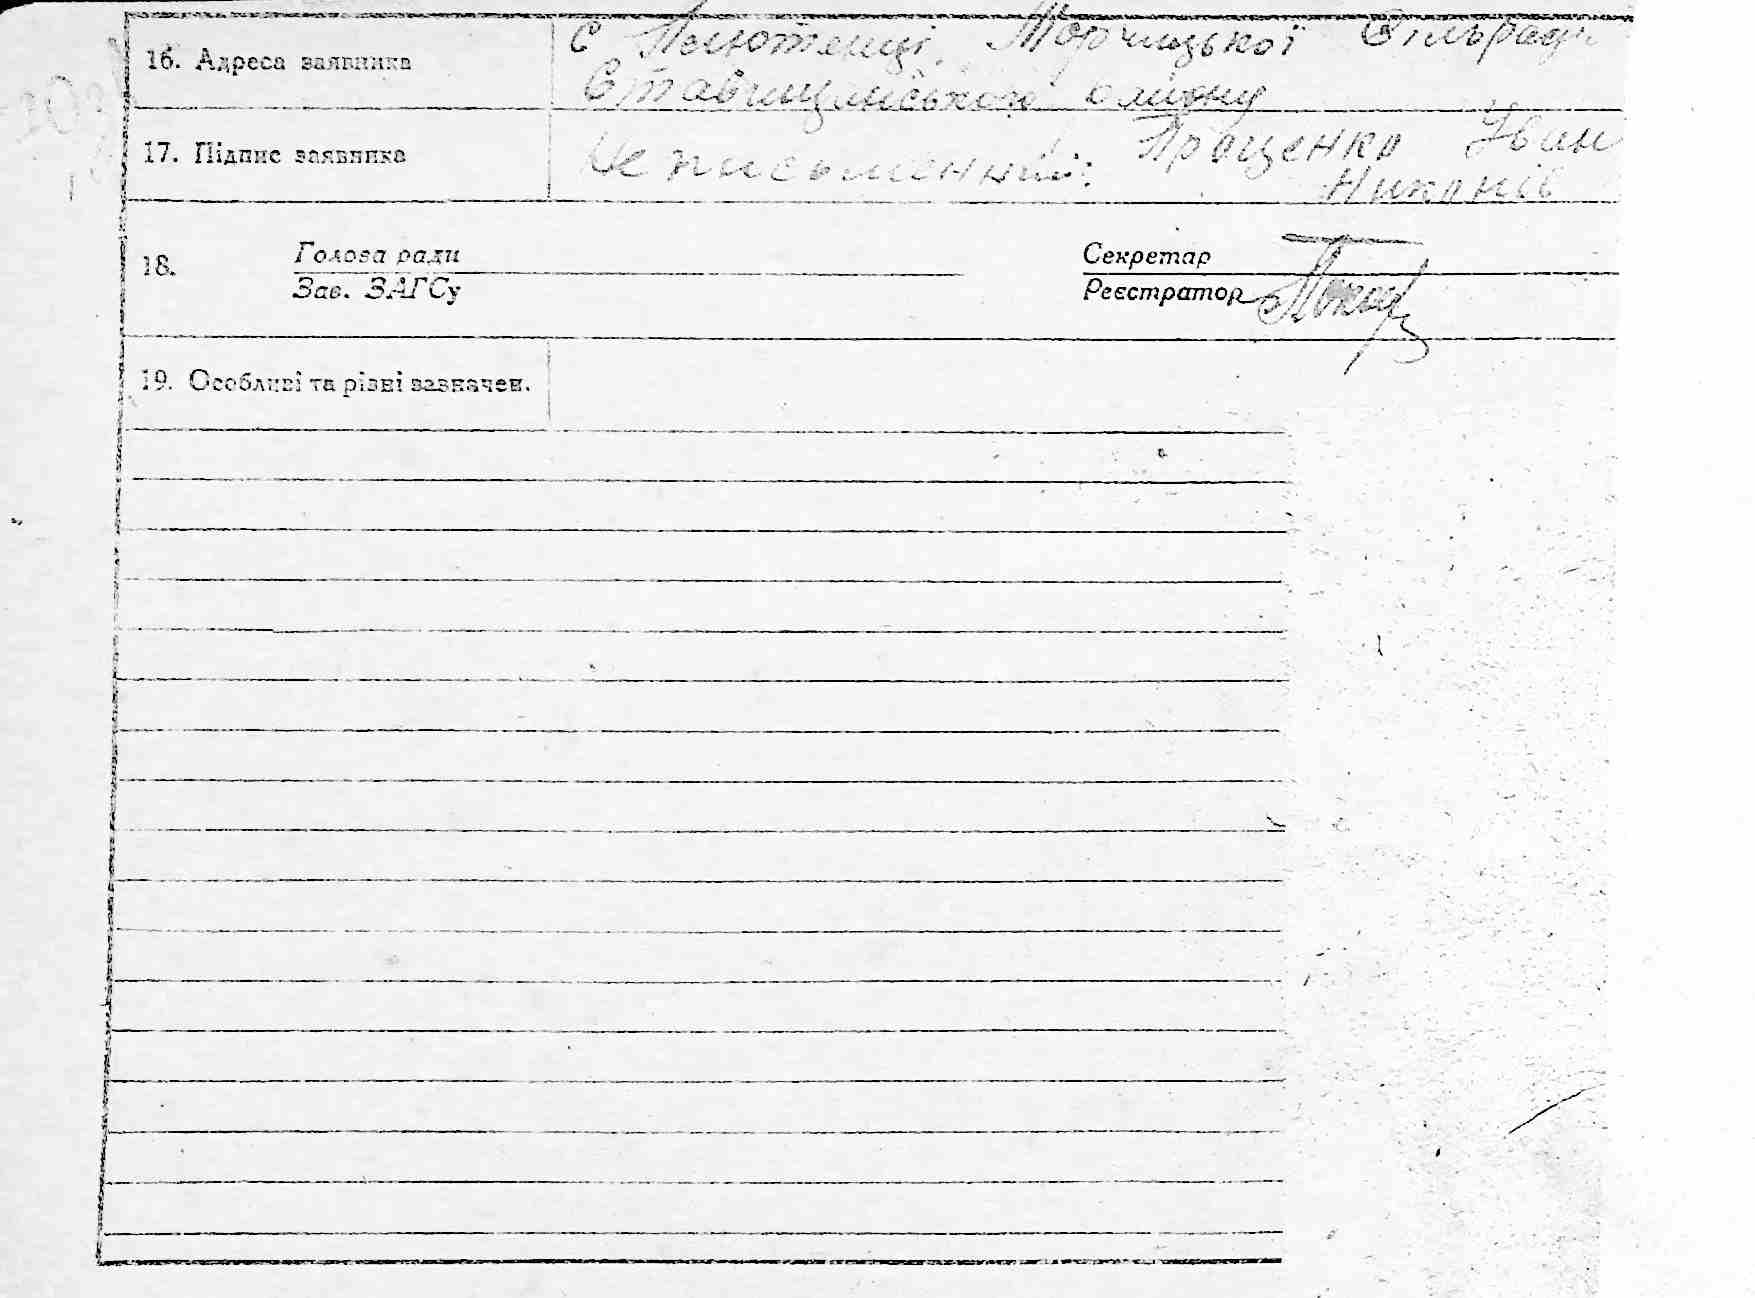 16. Адреса заявника
с Полютенці, Торчицької Сільради
Ставищанського району
17. Підпис заявника
Неписьменний: Проценко Іван
Никонів
18.
Голова ради
Зав. ЗАГСу
Секретар
Реєстратор
19. Особливі та різні зазначен.